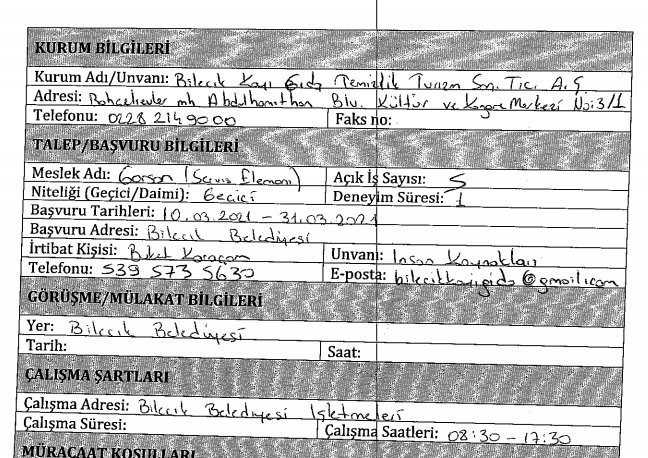 KURUM BİLGİLERİ
Kurum Adı/Unvanı: Bilecik Kayı Gıda Temizlik Turizm San. Tic. A.Ş.
Adresi: Bahçelievler mh Abdulhamithan Blv. Kültür ve Kongre Merkezi No:3/1
Telefonu: 0228 2149000 Faks no:
TALEP/BAŞVURU BİLGİLERİ
Meslek Adı: Garson (Servis Elemanı) Açık İş Sayısı: 5
Niteliği (Geçici/Daimi): Geçici Deneyim Süresi: 1
Başvuru Tarihleri: 10.03.2021 - 31.03.2021
Başvuru Adresi: Bilecik Belediyesi
İrtibat Kişisi: Buket Karaçam Unvanı: İnsan Kaynakları
Telefonu: 539 573 5630 E-posta: bilecikkayigida@gmail.com
GÖRÜŞME/MÜLAKAT BİLGİLERİ
Yer: Bilecik Belediyesi
Tarih: Saat:
ÇALIŞMA ŞARTLARI
Çalışma Adresi: Bilecik Belediyesi İşletmeleri
Çalışma Süresi: Çalışma Saatleri: 08:30 - 17:30
MÜRACAAT KOŞULLARI